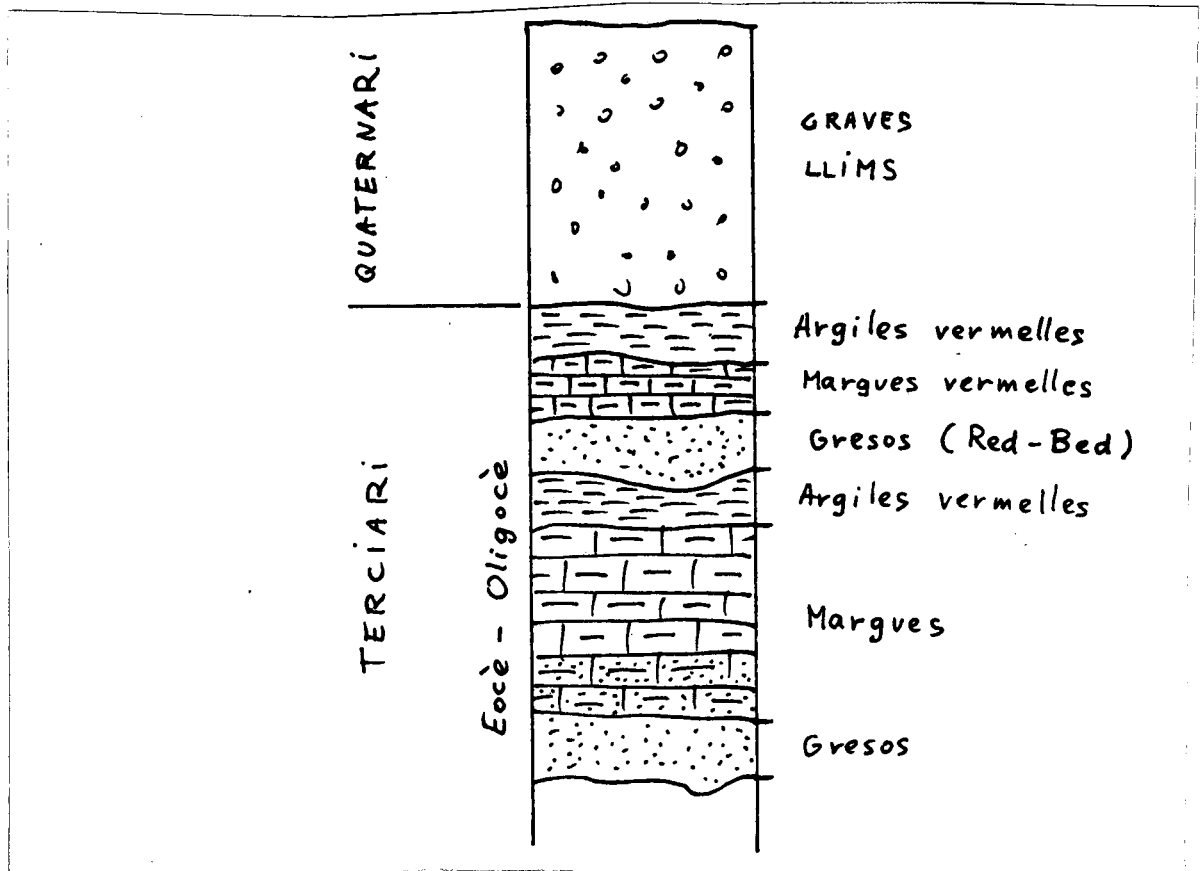 QUATERNARI
GRAVES
LLIMS
TERCIARI
Eocè - Oligocè
Argiles vermelles
Margues vermelles
Gresos (Red-Bed)
Argiles vermelles
Margues
Gresos